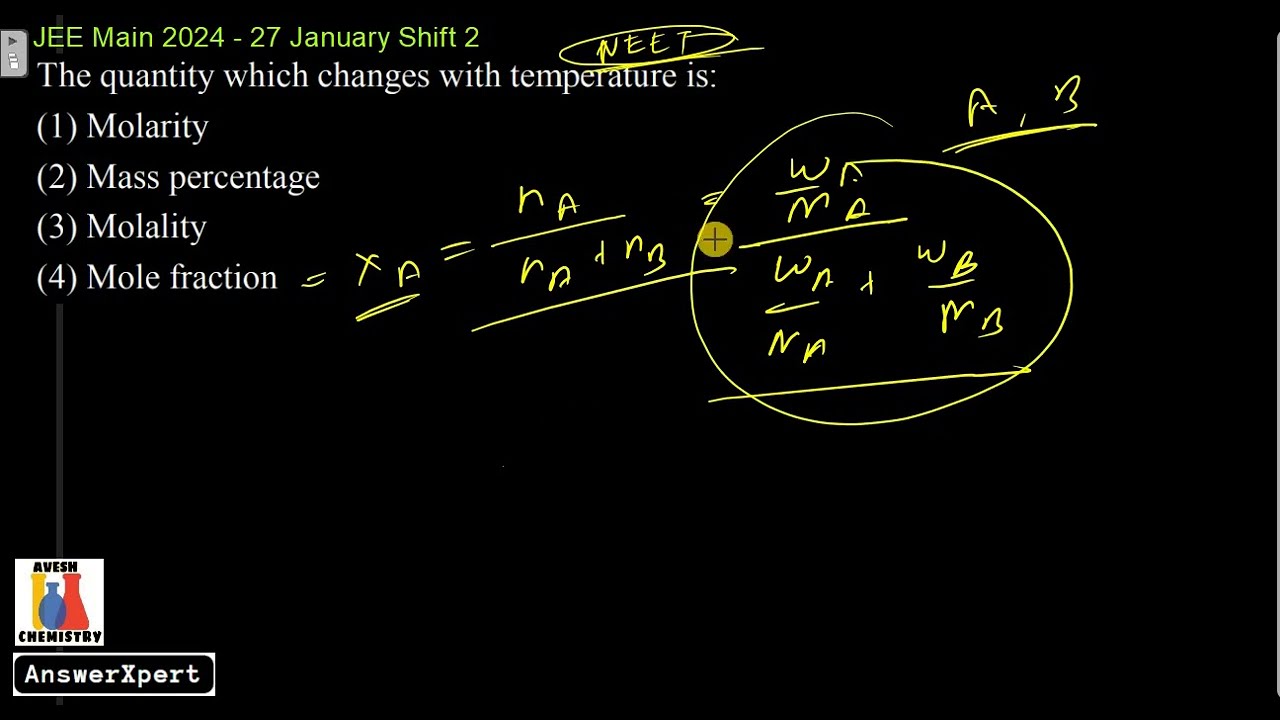 JEE Main 2024 - 27 January Shift 2
NEET
The quantity which changes with temperature is:
A, B
(1) Molarity
(2) Mass percentage
(3) Molality
(4) Mole fraction = xA = nA / nA + nB = WA/MA / WA/MA + WB/MB
AVESH
CHEMISTRY
AnswerXpert